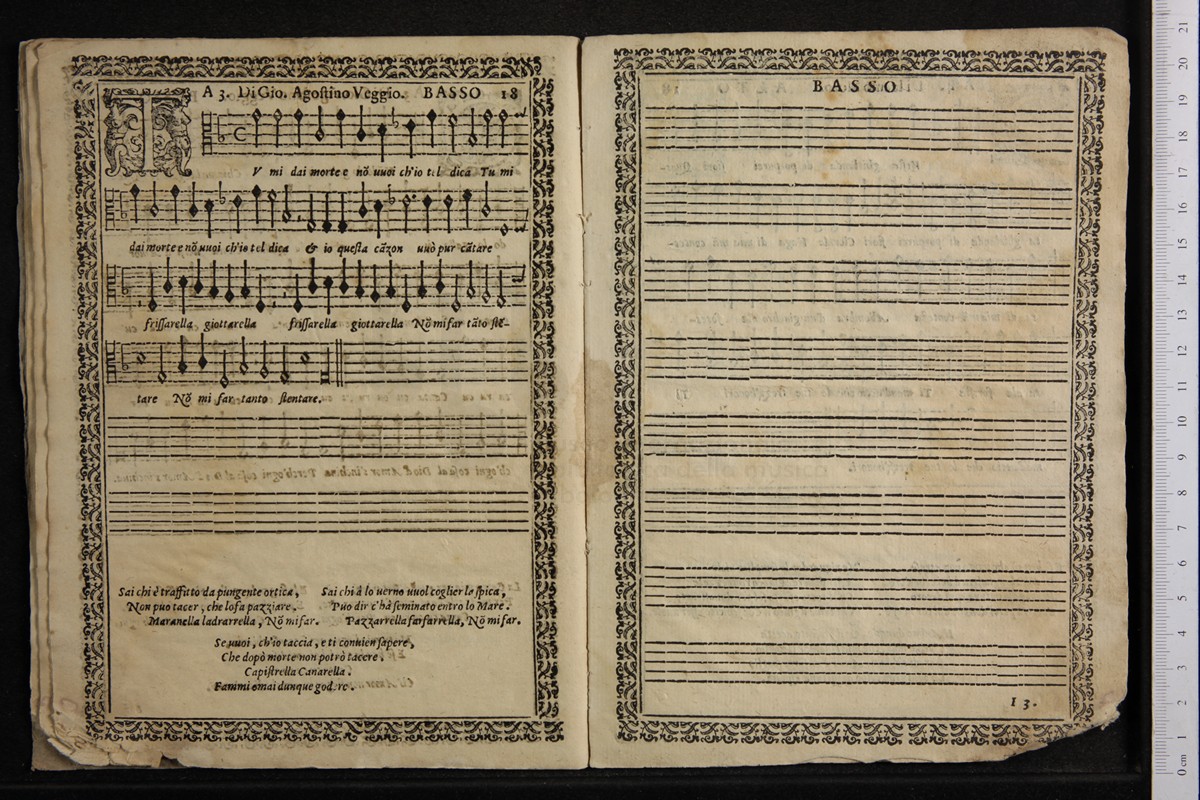 A 3. Di Gio. Agoſtino Veggio. BASSO 18
T
V mi dai morte e nõ uuoi ch'io tel dica Tu mi
dai morte e nõ uuoi ch'io tel dica & io queſta cãzon uuò pur cãtare
friſſarella giottarella friſſarella giottarella Nõ mi far tãto ſtē-
tare Nõ mi far tanto ſtentare.
Sai chi è traffitto da pungente ortica,
Non puo tacer, che lo fa pazziare.
Maranella ladrarrella, Nõ mi far.
Sai chi â lo uerno uuol coglier la ſpica,
Puo dir c'hà ſeminato entro lo Mare.
Pazzarrella farfarrella, Nõ mi far.
Se uuoi, ch'io taccia, e ti conuien ſapere,
Che dopò morte non potrò tacere.
Capiſtrella Canarella.
Fammi omai dunque godere.
BASSO
13.
della musica
0 cm 1 2 3 4 5 6 7 8 9 10 11 12 13 14 15 16 17 18 19 20 21